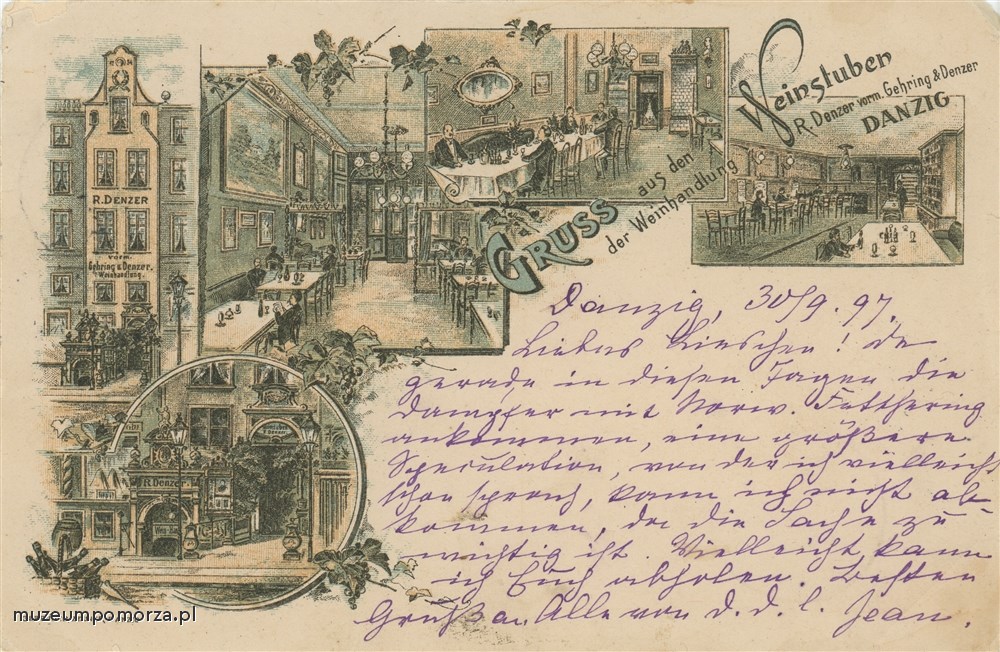 Weinstuben
R. Denzer vorm. Gehring & Denzer
DANZIG
GRUSS aus den
der Weinhandlung
R. DENZER
vorm.
Gehring & Denzer.
Weinhandlung.
R. Denzer.
Danzig, 30/9.97.
Liebes Lieschen! Da
gerade in diesen Tagen die
Dampfer mit Norw. Fetthering
ankommen, eine größere
Speculation, von der ich vielleicht
schon sprach, kann ich nicht ab-
kommen, da die Sache zu
wichtig ist. Vielleicht kann
ich Euch abholen. Besten
Gruß an Alle von d. d. l. Jean.
muzeumpomorza.pl